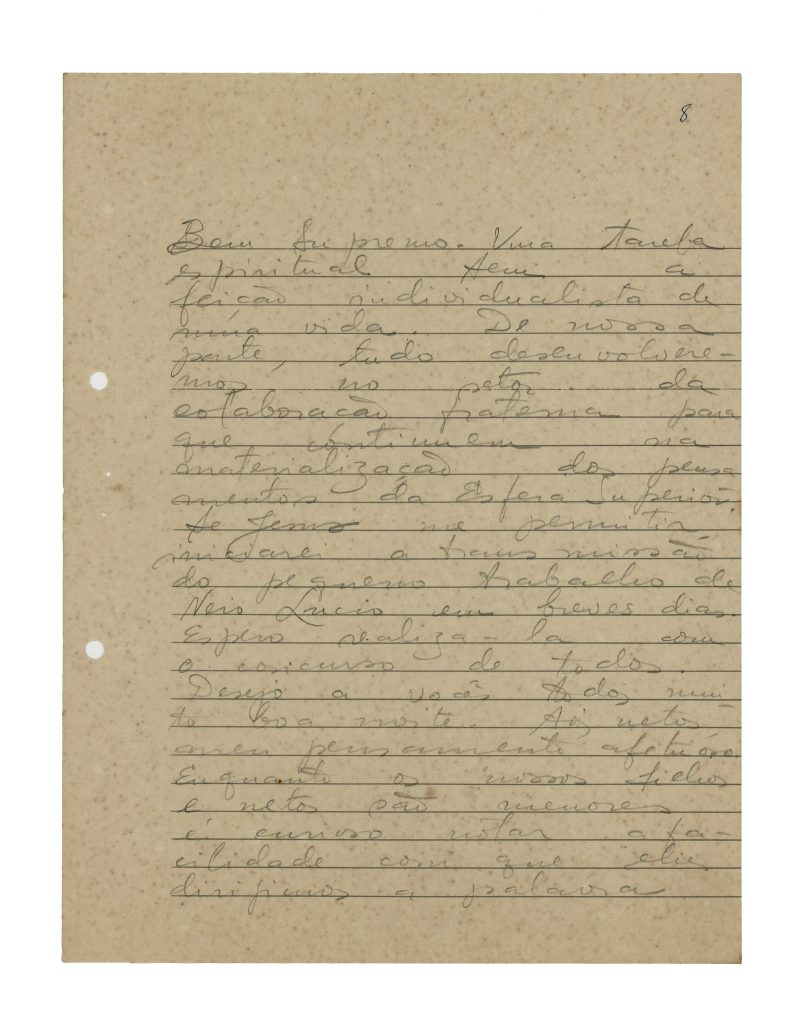 8
Bem Supremo. Uma tarefa
espiritual tem a
feição individualista de
uma vida. De nossa
parte, tudo desenvolvere-
mos no setor da
colaboração fraterna para
que continuem na
materialização dos pensa
mentos da Esfera Superior.
Se Jesus me permitir,
iniciarei a transmissão
do pequeno trabalho de
Neio Lúcio em breves dias.
Espero realiza-la com
o concurso de todos.
Desejo a vocês todos mui
to boa noite. Aos netos
meu pensamento afetuoso.
Enquanto os nossos filhos
e netos são menores
é curioso notar a fa-
cilidade com que lhes
dirigimos a palavra